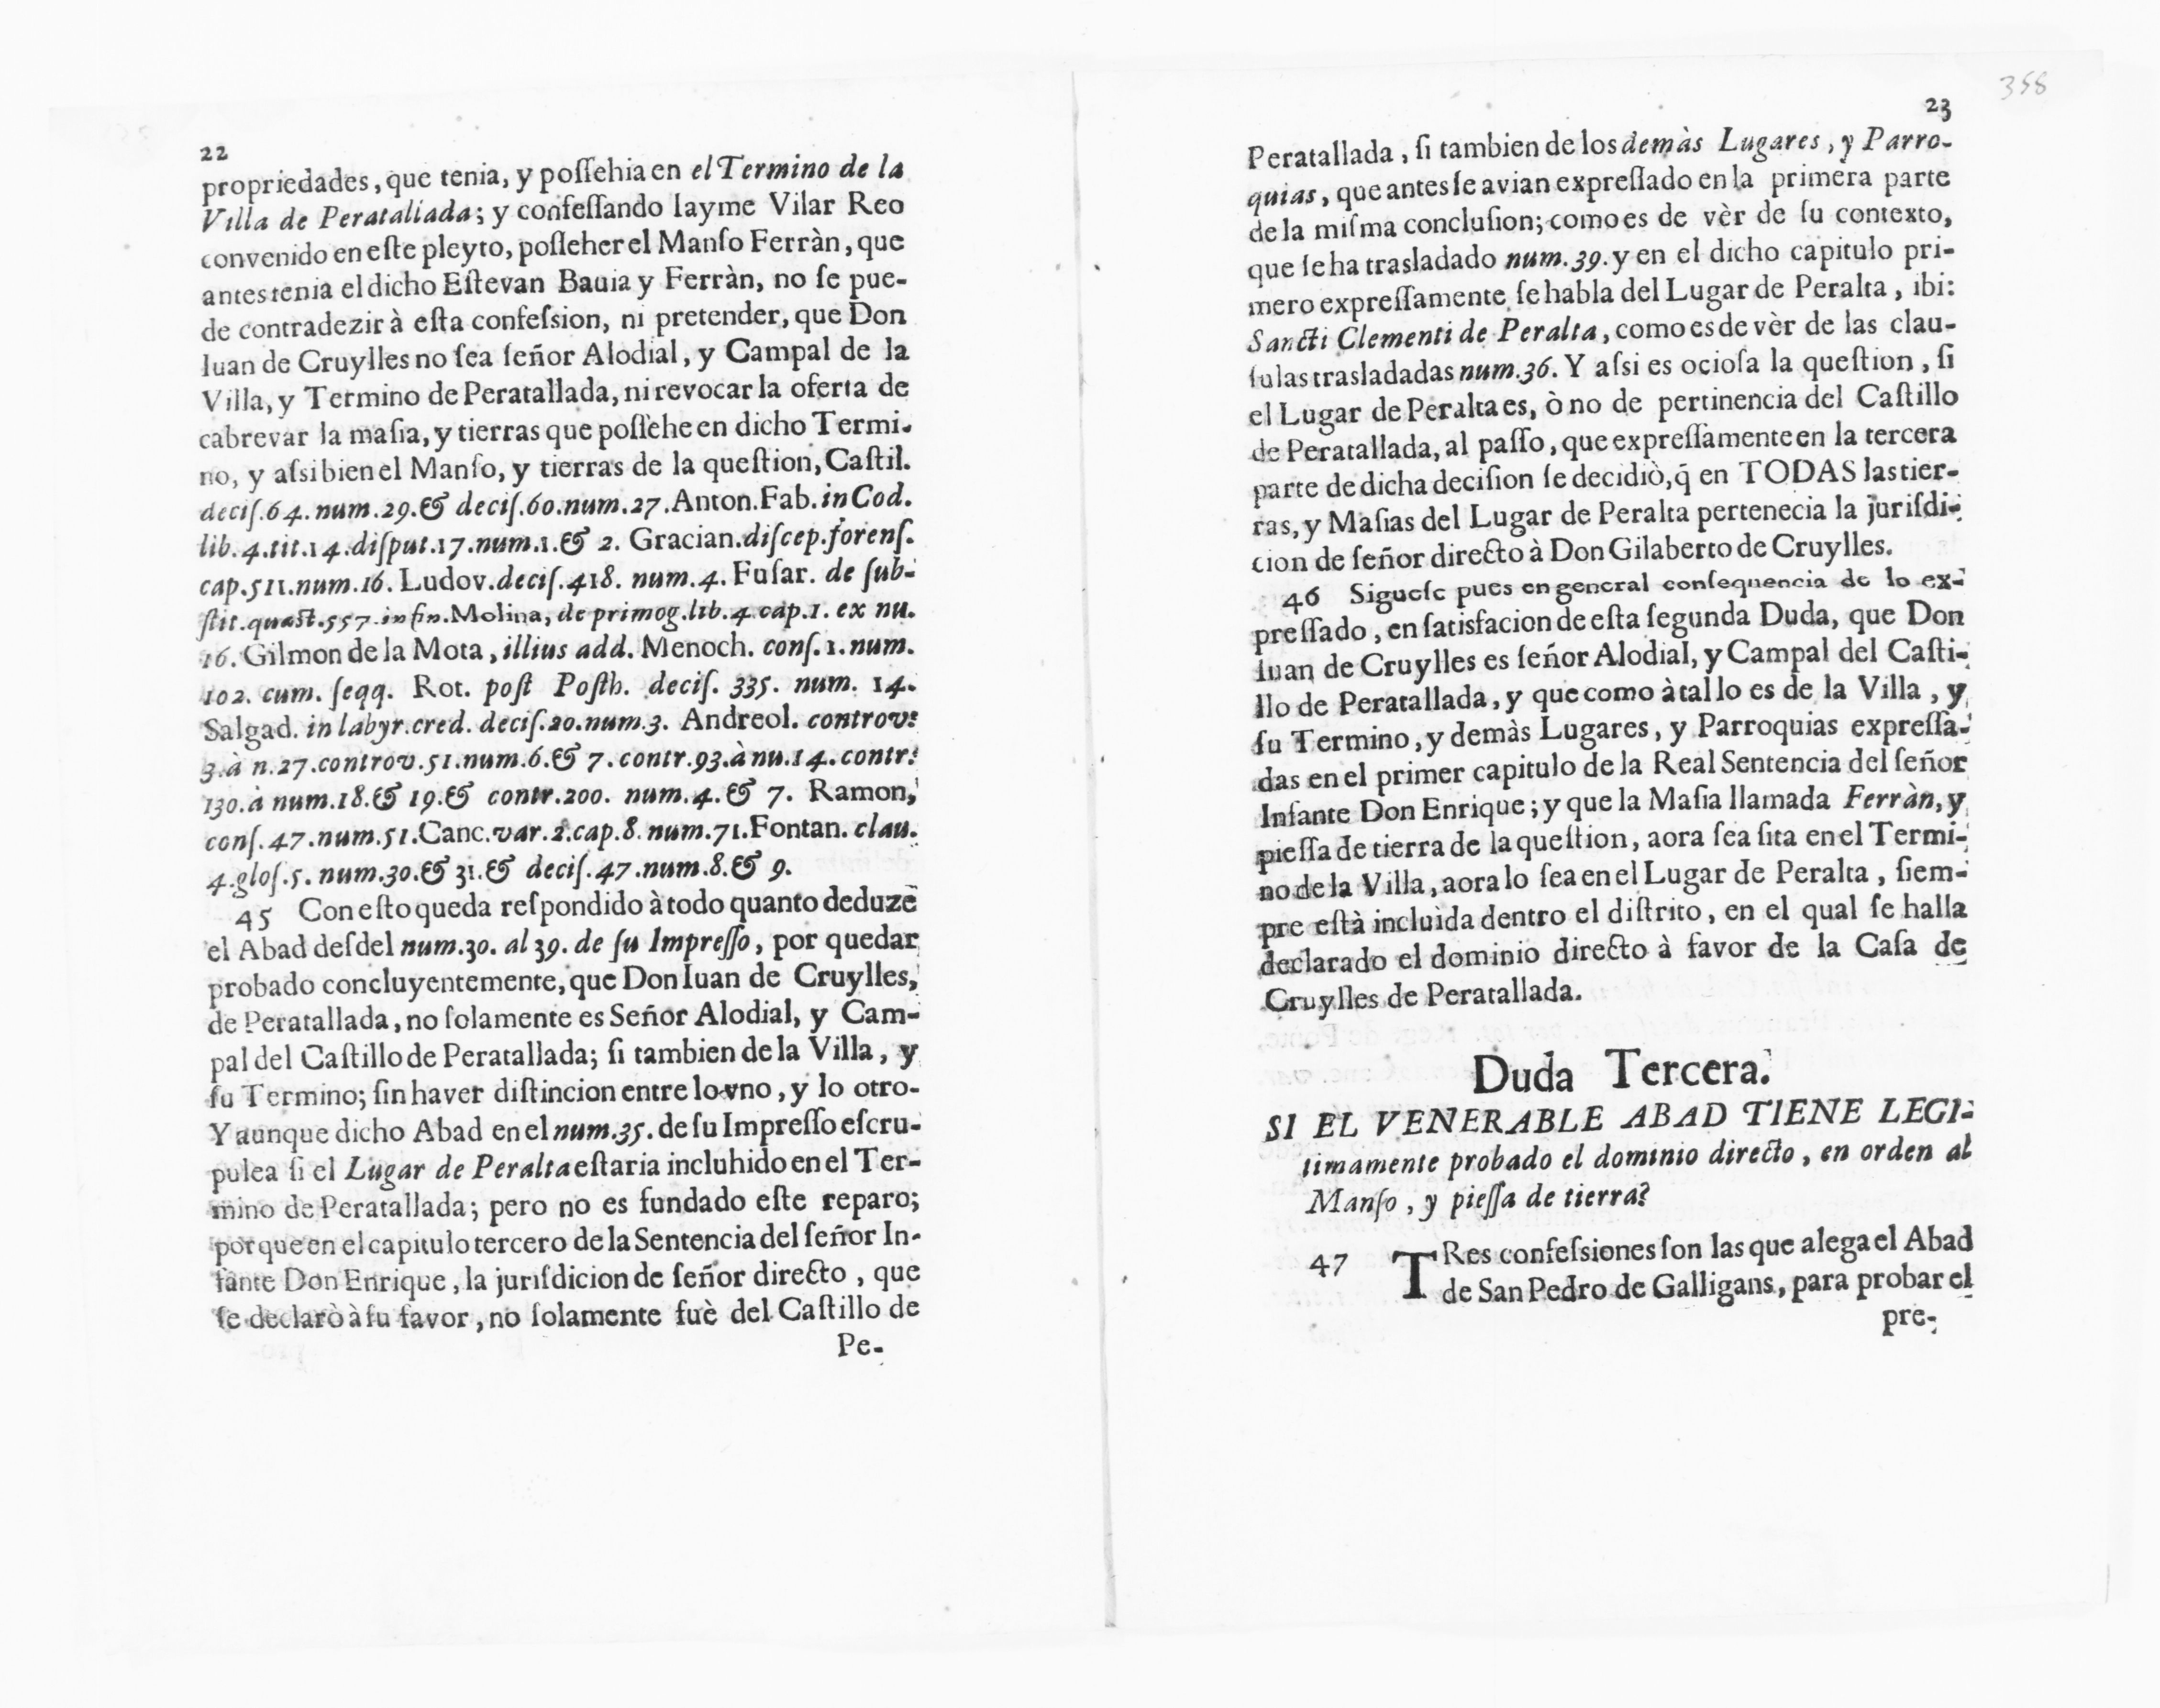 22
propriedades, que tenia, y poſſehia en el Termino de la
Villa de Perataliada; y confeſſando Iayme Vilar Reo
convenido en eſte pleyto, poſſeher el Manſo Ferràn, que
antes tenia el dicho Eſtevan Bauia y Ferràn, no ſe pue-
de contradezir à eſta confeſsion, ni pretender, que Don
Iuan de Cruylles no ſea ſeñor Alodial, y Campal de la
Villa, y Termino de Peratallada, ni revocar la oferta de
cabrevar la maſia, y tierras que poſſehe en dicho Termi-
no, y aſsi bien el Manſo, y tierras de la queſtion, Caſtil.
deciſ.64. num.29.& deciſ.60.num.27.Anton.Fab.in Cod.
lib.4.tit.14.diſput.17.num.1.& 2. Gracian.diſcep.forenſ.
cap.511.num.16. Ludov.deciſ.418. num.4. Fuſar. de ſub-
ſtit.quæſt.557.in fin.Molina, de primog.lib.4.cap.1. ex nu.
16. Gilmon de la Mota, illius add. Menoch. conſ.1.num.
102. cum. ſeqq. Rot. poſt Poſth. deciſ. 335. num. 14.
Salgad. in labyr.cred. deciſ.20.num.3. Andreol. controv:
3.à n.27.controv.51.num.6.& 7.contr.93.à nu.14.contr:
130.à num.18.& 19.& contr.200. num.4.& 7. Ramon,
conſ.47.num.51.Canc.var.2.cap.8.num.71.Fontan. clau.
4.gloſ.5. num.30.& 31.& deciſ.47.num.8.& 9.
45 Con eſto queda reſpondido à todo quanto deduze
el Abad deſdel num.30. al 39. de ſu Impreſſo, por quedar
probado concluyentemente, que Don Iuan de Cruylles,
de Peratallada, no ſolamente es Señor Alodial, y Cam-
pal del Caſtillo de Peratallada; ſi tambien de la Villa, y
ſu Termino; ſin haver diſtincion entre lo vno, y lo otro.
Y aunque dicho Abad en el num.35. de ſu Impreſſo eſcru-
pulea ſi el Lugar de Peralta eſtaria incluhido en el Ter-
mino de Peratallada; pero no es fundado eſte reparo;
porque en el capitulo tercero de la Sentencia del ſeñor In-
fante Don Enrique, la juriſdicion de ſeñor directo, que
ſe declarò à ſu favor, no ſolamente fuè del Caſtillo de
Pe-
358
23
Peratallada, ſi tambien de los demàs Lugares, y Parro-
quias, que antes ſe avian expreſſado en la primera parte
de la miſma concluſion; como es de vèr de ſu contexto,
que ſe ha trasladado num.39. y en el dicho capitulo pri-
mero expreſſamente ſe habla del Lugar de Peralta, ibi:
Sancti Clementi de Peralta, como es de vèr de las clau-
ſulas trasladadas num.36. Y aſsi es ocioſa la queſtion, ſi
el Lugar de Peralta es, ò no de pertinencia del Caſtillo
de Peratallada, al paſſo, que expreſſamente en la tercera
parte de dicha deciſion ſe decidiò, q̃ en TODAS las tier-
ras, y Maſias del Lugar de Peralta pertenecia la juriſdi-
cion de ſeñor directo à Don Gilaberto de Cruylles.
46 Sigueſe pues en general conſequencia de lo ex-
preſſado, en ſatisfacion de eſta ſegunda Duda, que Don
Iuan de Cruylles es ſeñor Alodial, y Campal del Caſti-
llo de Peratallada, y que como à tal lo es de la Villa, y
ſu Termino, y demàs Lugares, y Parroquias expreſſa-
das en el primer capitulo de la Real Sentencia del ſeñor
Infante Don Enrique; y que la Maſia llamada Ferràn, y
pieſſa de tierra de la queſtion, aora ſea ſita en el Termi-
no de la Villa, aora lo ſea en el Lugar de Peralta, ſiem-
pre eſtà incluìda dentro el diſtrito, en el qual ſe halla
declarado el dominio directo à favor de la Caſa de
Cruylles de Peratallada.
Duda Tercera.
SI EL VENERABLE ABAD TIENE LEGI-
timamente probado el dominio directo, en orden al
Manſo, y pieſſa de tierra?
47 TRes confeſsiones ſon las que alega el Abad
de San Pedro de Galligans, para probar el
pre-